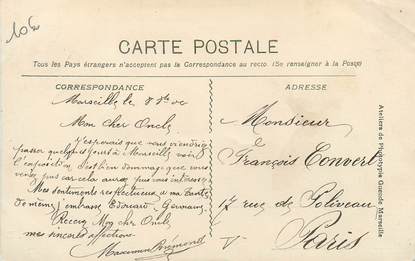 10€
CARTE POSTALE
Tous les Pays étrangers n'acceptent pas la Correspondance au recto. (Se renseigner à la Poste)
CORRESPONDANCE
Marseille le 8
Mon cher Oncle
J'esperais que vous viendriez
passer quelques jours à Marseille voir
l'exposition c'est bien dommage que vous
venez pas car cela aurait pu vous intéresser
Mes sentiments respectueux a ma tante
de même j'embrasse Edouard, Germaine,
Recevez Mon cher Oncle
mes sincères affection
Maximin
ADRESSE
Monsieur
François Convert
17 rue de Poliveau
Paris
V
Ateliers de Phototypie Guende Marseille